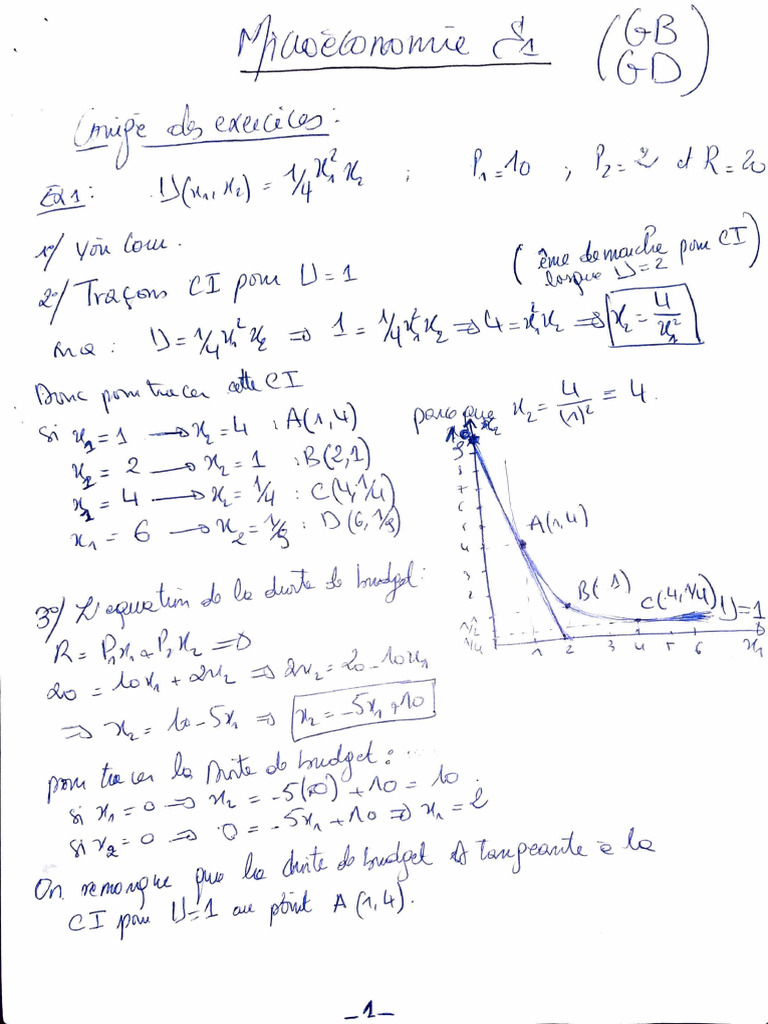 Microéconomie S1 (GB
GD)
Corrigé des exercices :
EX1 : U(x₁, x₂) = 1/4 x₁² x₂ ; P₁ = 10 ; P₂ = 2 et R = 20
1°/ Voir Cour.
2°/ Traçons CI pour U = 1 (ême demarche pour CI
lorsque U = 2)
U = 1/4 x₁² x₂ ⇒ 1 = 1/4 x₁² x₂ ⇒ 4 = x₁² x₂ ⇒ x₂ = 4/x₁²
Donc pour tracer cette CI
Si x₁ = 1 → x₂ = 4 : A(1,4) parce que x₂ = 4/(1)² = 4.
x₁ = 2 → x₂ = 1 : B(2,1)
x₁ = 4 → x₂ = 1/4 : C(4,1/4)
x₁ = 6 → x₂ = 1/9 : D(6,1/9)
x₂
10
9
8
7
6
5
4
3
2
1
1/2
1/4
A(1,4)
B( 1)
C(4,1/4)
U = 1
1 2 3 4 5 6 x₁
3°/ L'equation de la droite de budget :
R = P₁x₁ + P₂x₂ ⇒
20 = 10x₁ + 2x₂ ⇒ 2x₂ = 20 - 10x₁
⇒ x₂ = 10 - 5x₁ ⇒ x₂ = -5x₁ + 10
pour tracer la droite de budget :
si x₁ = 0 ⇒ x₂ = -5(0) + 10 = 10
si x₂ = 0 ⇒ 0 = -5x₁ + 10 ⇒ x₁ = 2
On remarque que la droite de budget tangeante à la
CI pour U = 1 au point A(1,4).
_1_